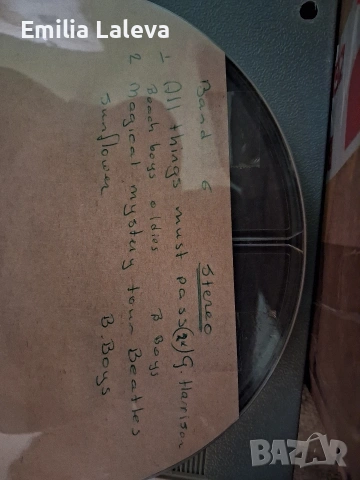 Emilia Laleva
Band 6 Stereo
1 All things must pass (2x) G. Harrison
Beach boys oldies B Boys
2 Magical mystery tour Beatles
Sunflower B. Boys
BAZAR